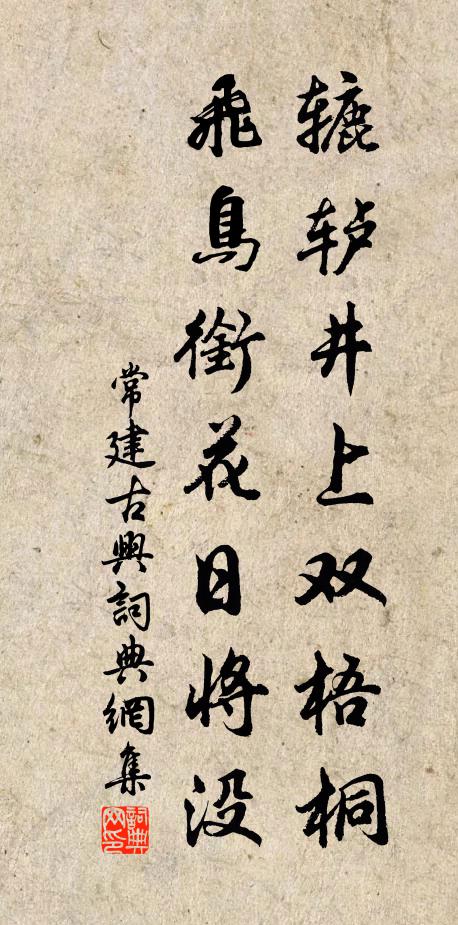 辘轳井上双梧桐
飛鳥銜花日將没
常建古興詞典網集
詞典網印